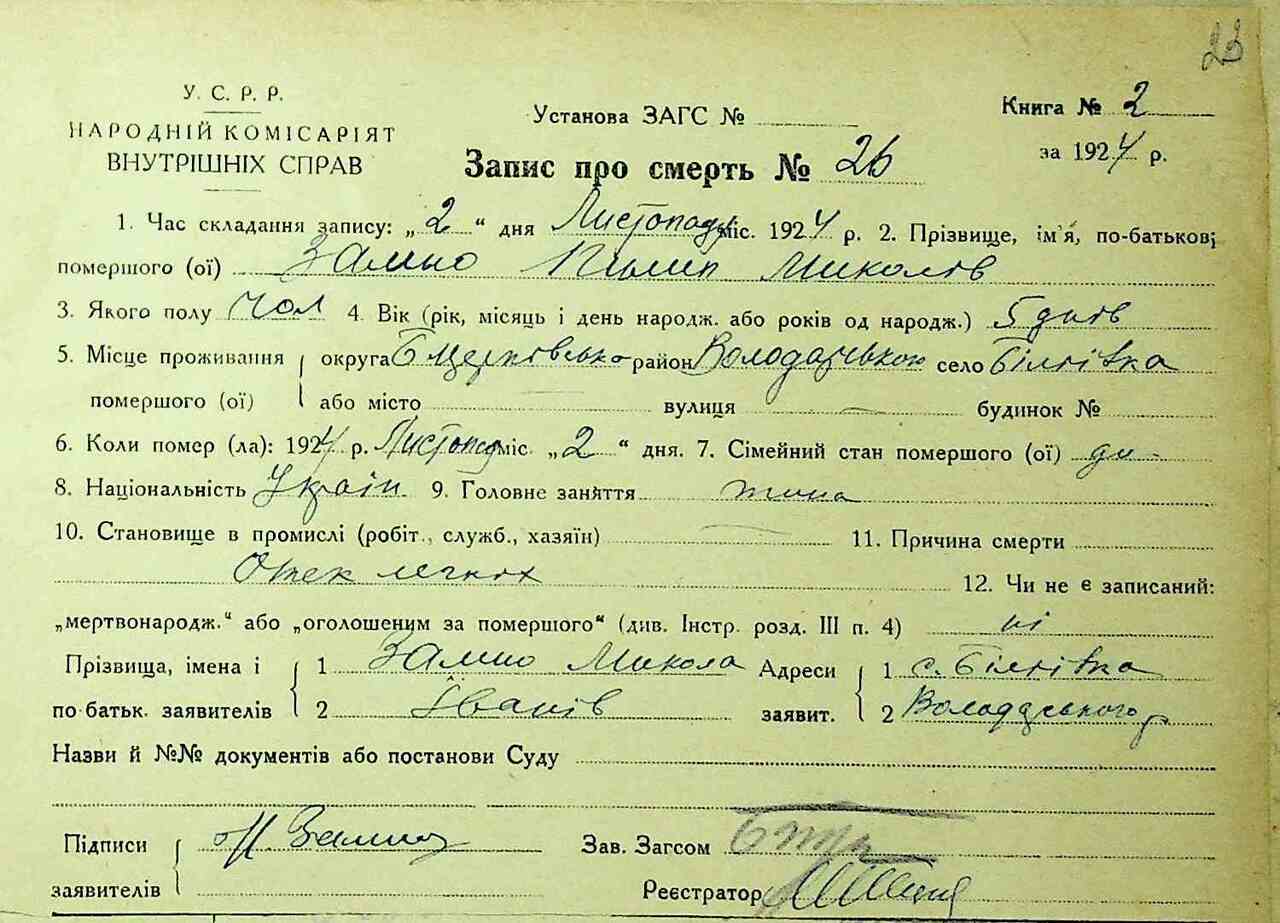 23
У. С. Р. Р.
НАРОДНІЙ КОМІСАРІЯТ
ВНУТРІШНІХ СПРАВ
Установа ЗАГС №
Книга № 2
за 1924 р.
Запис про смерть № 26
1. Час складання запису: „2“ дня Листопаду міс. 1924 р. 2. Прізвище, ім'я, по-батькові
помершого (ої) Залило Пилип Миколів
3. Якого полу Чол 4. Вік (рік, місяць і день народж. або років од народж.) 5 днів
5. Місце проживання округа Б Церковська район Володарського село Біліївка
помершого (ої) або місто вулиця — будинок №
6. Коли помер (ла): 1924 р. Листопад міс. „2“ дня. 7. Сімейний стан помершого (ої) ди-
8. Національність Україн. 9. Головне заняття тина
10. Становище в промислі (робіт., служб., хазяїн) — 11. Причина смерти
Отек легких
12. Чи не є записаний:
„мертвонародж.“ або „оголошеним за помершого“ (див. Інстр. розд. III п. 4) ні
Прізвища, імена і 1 Микола Адреси 1 с. Біліївка
по батьк. заявителів 2 Іванів заявит. 2 Володарського р
Назви й №№ документів або постанови Суду
Підписи М
заявителів
Зав. Загсом
Реєстратор